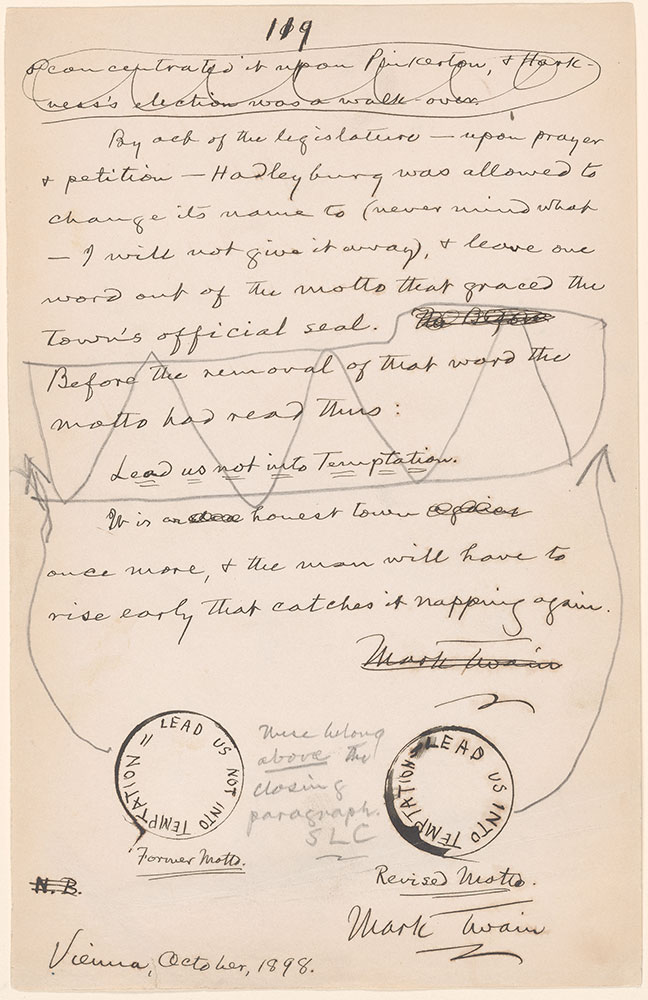 119
& concentrated it upon Pinkerton, & Hark-
ness's election was a walk-over.
By act of the legislature — upon prayer
& petition — Hadleyburg was allowed to
change its name to (never mind what
— I will not give it away), & leave one
word out of the motto that graced the
town's official seal. Before
Before the removal of that word the
motto had read thus:
Lead us not into Temptation.
It is an honest town
once more, & the man will have to
rise early that catches it napping again.
Mark Twain
= LEAD US NOT INTO TEMPTATION
These belong
above the
closing
paragraph.
SLC
= LEAD US INTO TEMPTATION
Former Motto.
Revised Motto.
N.B.
Mark Twain
Vienna, October, 1898.